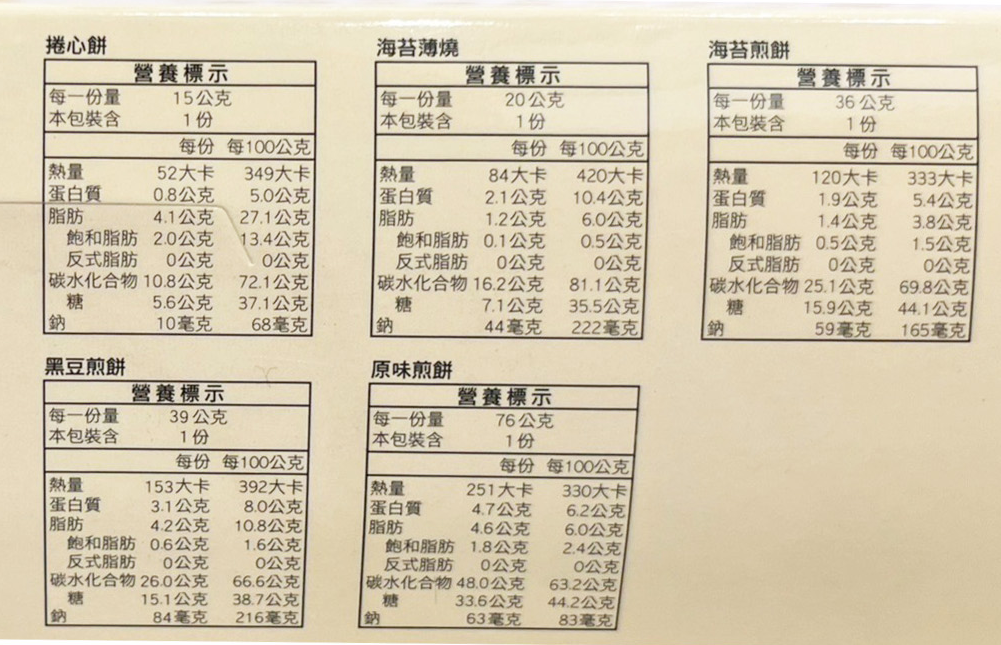 捲心餅
營養標示
每一份量 15公克
本包裝含 1份
每份 每100公克
熱量 52大卡 349大卡
蛋白質 0.8公克 5.0公克
脂肪 4.1公克 27.1公克
飽和脂肪 2.0公克 13.4公克
反式脂肪 0公克 0公克
碳水化合物 10.8公克 72.1公克
糖 5.6公克 37.1公克
鈉 10毫克 68毫克
海苔薄燒
營養標示
每一份量 20公克
本包裝含 1份
每份 每100公克
熱量 84大卡 420大卡
蛋白質 2.1公克 10.4公克
脂肪 1.2公克 6.0公克
飽和脂肪 0.1公克 0.5公克
反式脂肪 0公克 0公克
碳水化合物 16.2公克 81.1公克
糖 7.1公克 35.5公克
鈉 44毫克 222毫克
海苔煎餅
營養標示
每一份量 36公克
本包裝含 1份
每份 每100公克
熱量 120大卡 333大卡
蛋白質 1.9公克 5.4公克
脂肪 1.4公克 3.8公克
飽和脂肪 0.5公克 1.5公克
反式脂肪 0公克 0公克
碳水化合物 25.1公克 69.8公克
糖 15.9公克 44.1公克
鈉 59毫克 165毫克
黑豆煎餅
營養標示
每一份量 39公克
本包裝含 1份
每份 每100公克
熱量 153大卡 392大卡
蛋白質 3.1公克 8.0公克
脂肪 4.2公克 10.8公克
飽和脂肪 0.6公克 1.6公克
反式脂肪 0公克 0公克
碳水化合物 26.0公克 66.6公克
糖 15.1公克 38.7公克
鈉 84毫克 216毫克
原味煎餅
營養標示
每一份量 76公克
本包裝含 1份
每份 每100公克
熱量 251大卡 330大卡
蛋白質 4.7公克 6.2公克
脂肪 4.6公克 6.0公克
飽和脂肪 1.8公克 2.4公克
反式脂肪 0公克 0公克
碳水化合物 48.0公克 63.2公克
糖 33.6公克 44.2公克
鈉 63毫克 83毫克